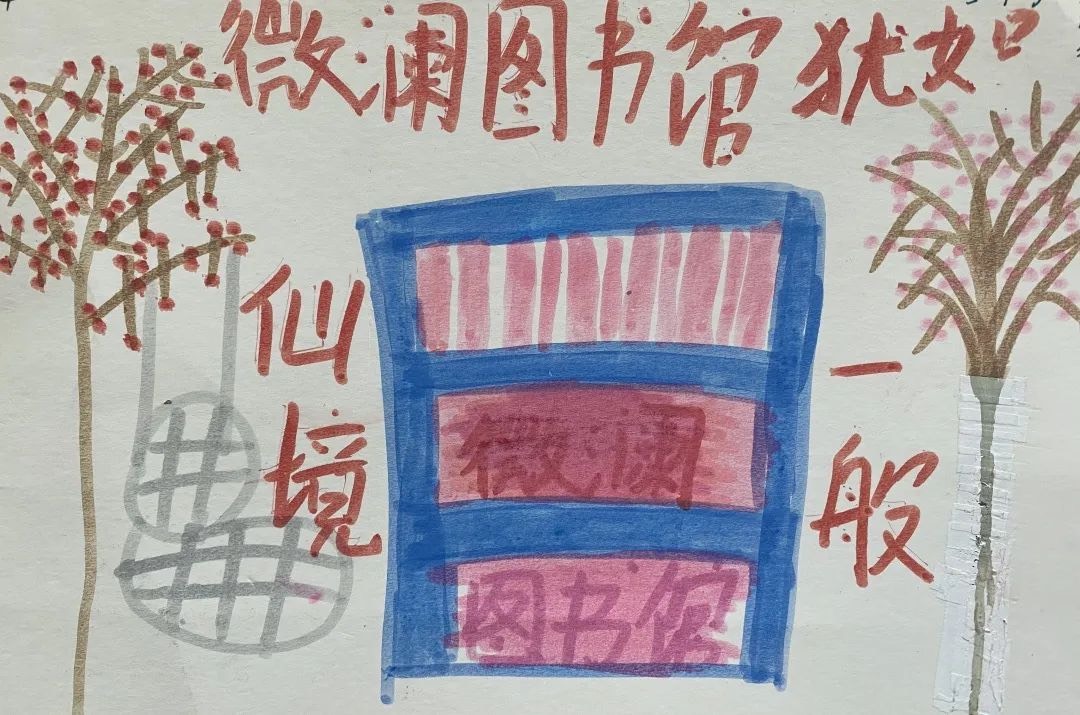 微澜图书馆犹如
仙境
一般
微澜
图书馆